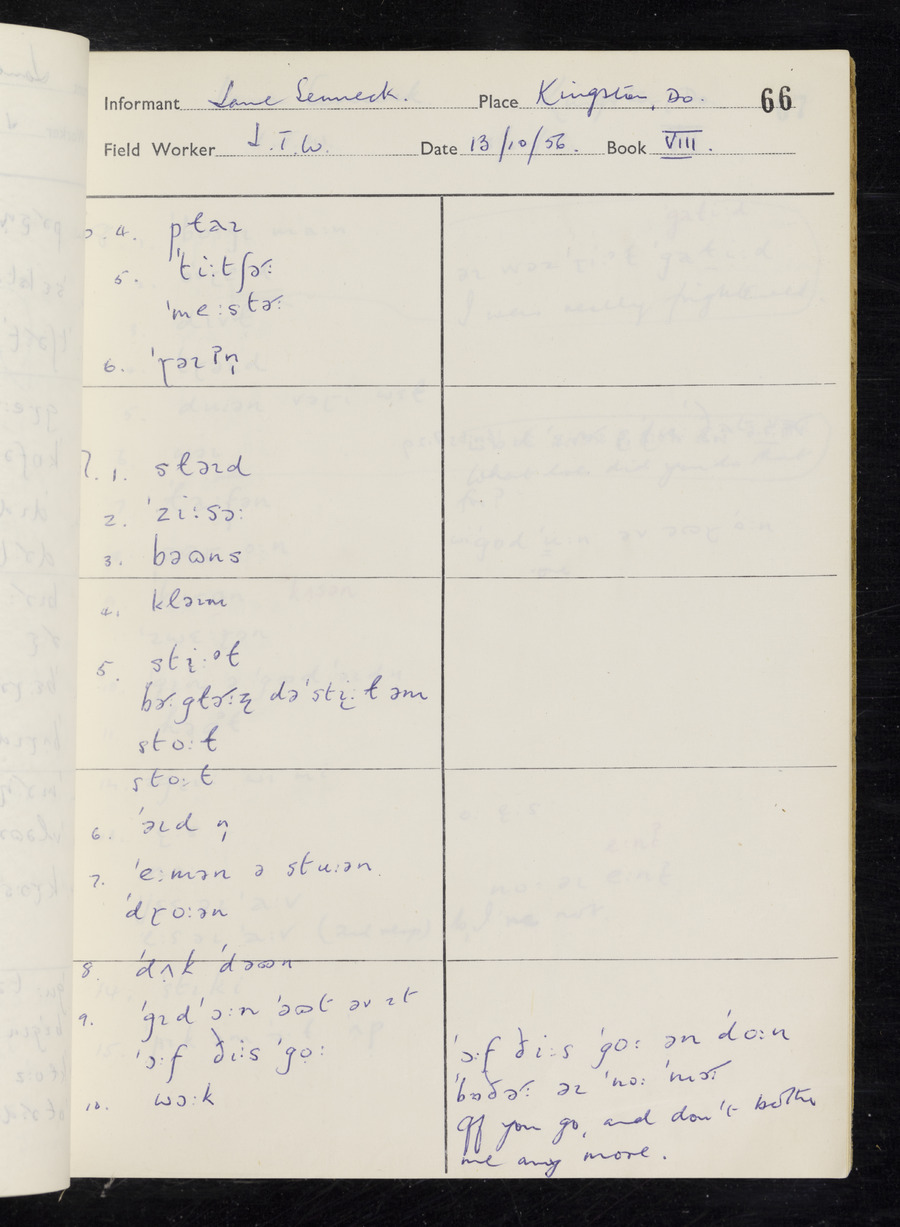 Informant Lane Senneck. Place Kingston, Do. 66
Field Worker J.T.W. Date 13/10/56. Book VIII.
4. ptaɪ
5. ˈtiːtʃɚː
ˈmeːstɚː
6. ˈɽəɪʔn̩
1. stəɪd
2. ˈziːsəː
3. bəɷns
4. kləɪm
5. stɪ̞ːᵊt
bɚːgtɚːz̨ dəˈstɪ̞ːt əm
stoːt
stoːt
6. ˈəɪd n̩
7. ˈeːmən ə stuːən
ˈdɽoːən
8. ˈdʌk ˈdəɷn
9. ˈgɪdˈɔːn ˈəɷt əv ɪt
ˈɔːf ðiːs ˈgoː
10. wɔːk
ˈɔːf ðiːs ˈgoː ən ˈdoːn
ˈbɒðɚː əɪ ˈnoː ˈmɚː
Off you go, and don't bother
me any more.